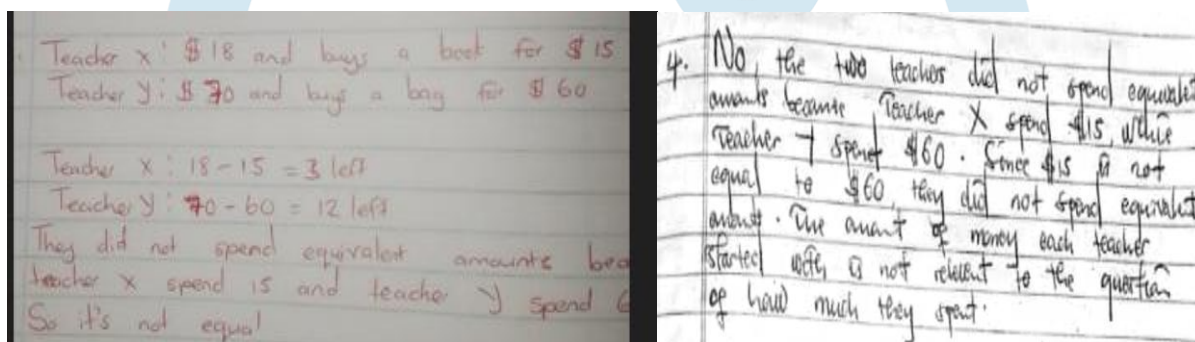 Teacher X: $ 18 and buys a book for $ 15
Teacher Y: $ 70 and buys a bag for $ 60
Teacher X: 18 - 15 = 3 left
Teacher Y: 70 - 60 = 12 left
They did not spend equivalent amounts bec
teacher X spend 15 and teacher Y spend 6
So it's not equal
4. No, the two teachers did not spend equivalent
amounts because Teacher X spend $15, while
Teacher Y spent $60. Since $15 is not
equal to $60, they did not spend equivalent
amount. The amount of money each teacher
started with is not relevant to the question
of how much they spent.